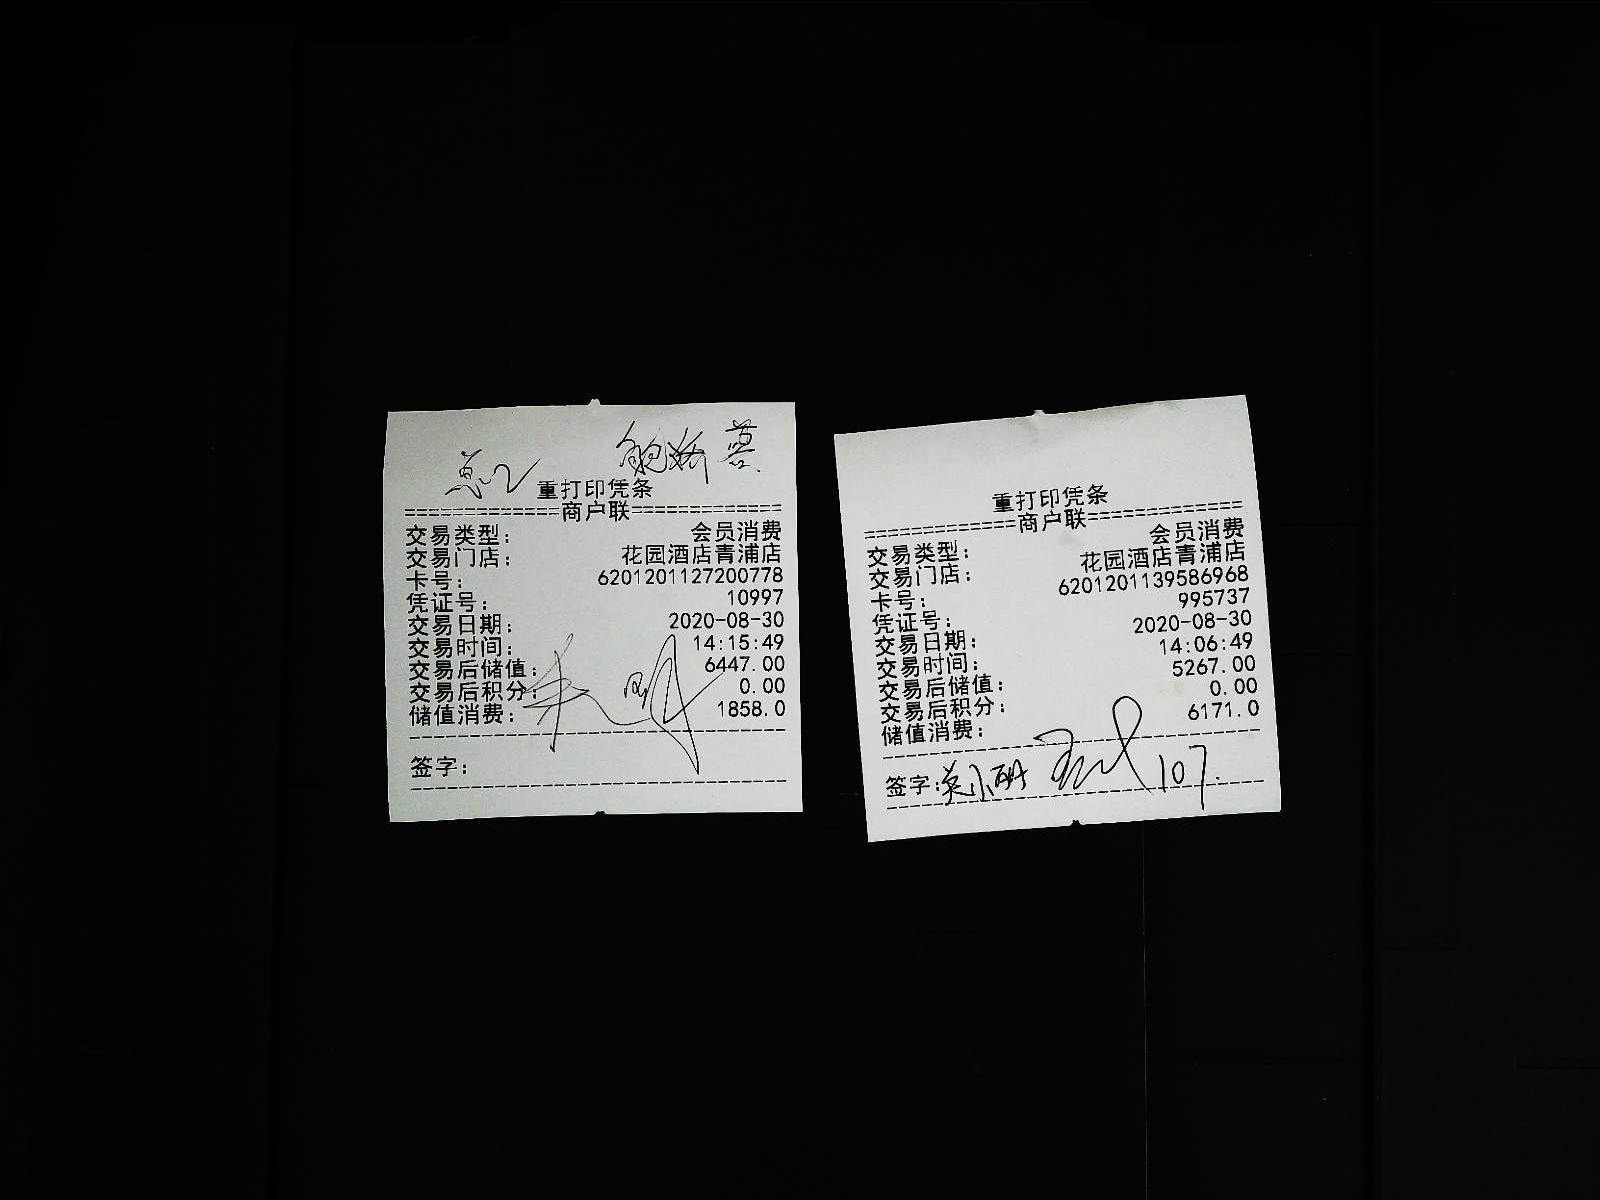 重打印凭条
============商户联============
交易类型: 会员消费
交易门店: 花园酒店青浦店
卡号: 6201201127200778
凭证号: 10997
交易日期: 2020-08-30
交易时间: 14:15:49
交易后储值: 6447.00
交易后积分: 0.00
储值消费: 1858.0
签字:
重打印凭条
============商户联============
交易类型: 会员消费
交易门店: 花园酒店青浦店
卡号: 6201201139586968
凭证号: 995737
交易日期: 2020-08-30
交易时间: 14:06:49
交易后储值: 5267.00
交易后积分: 0.00
储值消费: 6171.0
签字: 107.